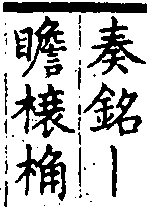 奏銘丨
瞻榱桷